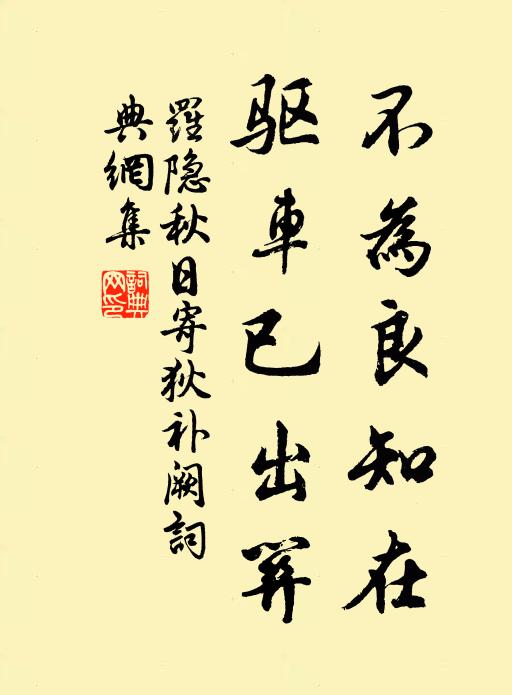 不為良知在
驱車已出關
羅隐秋日寄狄补阙詞
典網集
詞典
网印